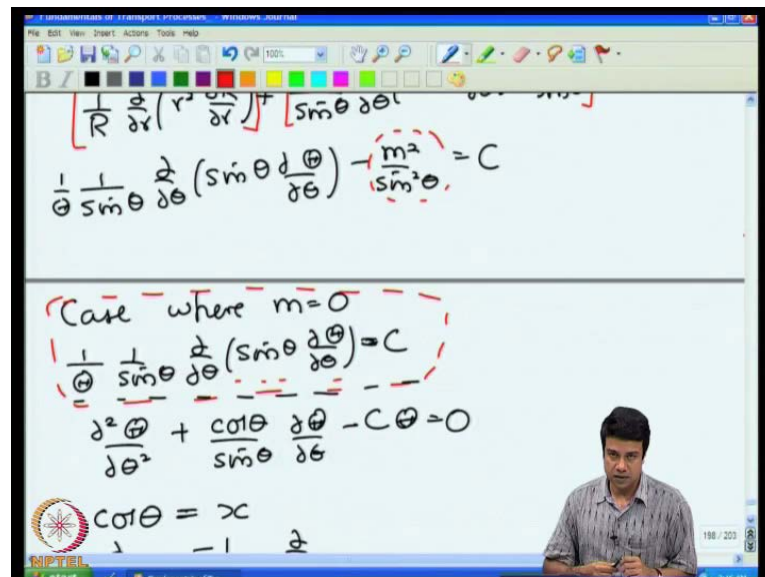 Fundamentals of Transport Processes - Windows Journal
File Edit View Insert Actions Tools Help
100%
B I
[1/R ∂/∂r (r² ∂R/∂r)] + [ sinθ ∂θ( ∂θ sin² ]
1/Θ 1/sinθ ∂/∂θ (sinθ ∂Θ/∂θ) - m²/sin²θ = C
Case where m=0
1/Θ 1/sinθ ∂/∂θ (sinθ ∂Θ/∂θ) = C
∂²Θ/∂θ² + cosθ/sinθ ∂Θ/∂θ - CΘ = 0
cosθ = x
-1 ∂
198 / 203
NPTEL
start